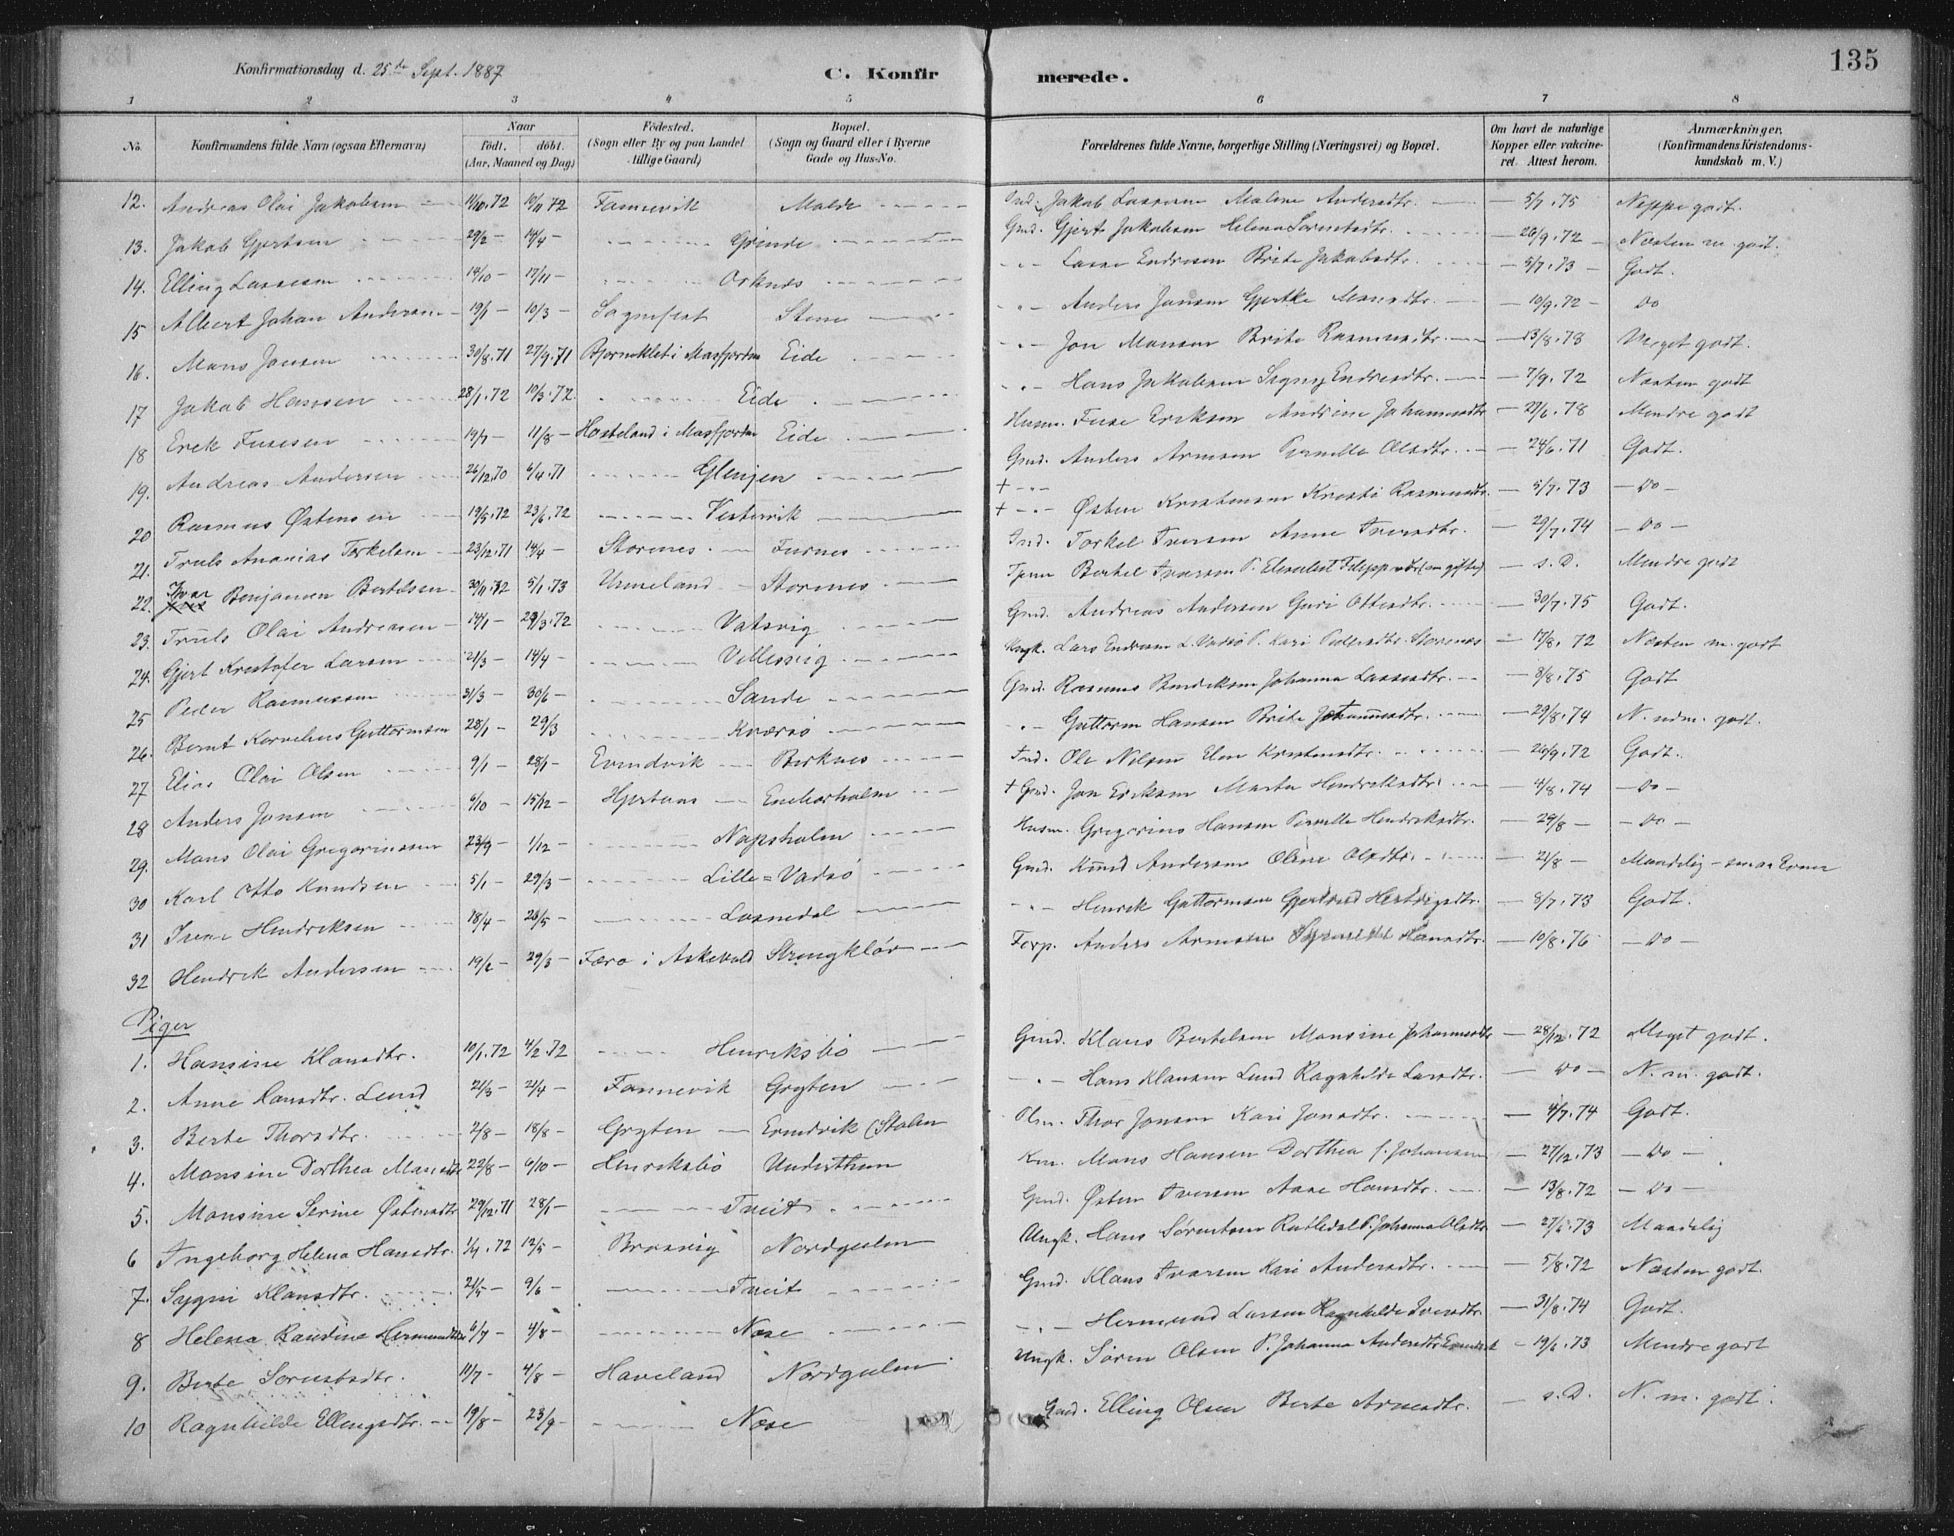 Konfirmationsdag d. 25de Sept. 1887
C. Konfirmerede.
135
1 2 3 4 5 6 7 8
No. Konfirmandens fulde Navn (ogsaa Efternavn) Naar født. døbt. (Aar, Maaned og Dag) Fødested. (Sogn eller By og paa Landet tillige Gaard) Bopæl. (Sogn og Gaard eller i Byerne Gade og Hus-No. Forældrenes fulde Navne, borgerlige Stilling (Næringsvei) og Bopæl. Om havt de naturlige Kopper eller vakcineret. Attest herom. Anmærkninger. (Konfirmandens Kristendomskundskab m. V.)
12. Andreas Olai Jakobsen 10/11 72 Fannevik Molde Jakob Lassesen Malene Andersdtr. 5/7. 75 Neppe godt.
13. Jakob Gjertsen 29/2 - 14/4 - Grinde Gmd. Gjert Jakobsen Helena Sørensdtr. 26/9. 72 Næsten m. godt.
14. Elling Lassesen 14/10 - 17/11 - Orknes Lasse Endresen Brite Jakobsdtr. 5/7. 73 - Godt.
15 Albert Johan Andersen 19/1 - 10/3 - Sognefest Stene Anders Jansen Gjertke 10/9. 72 - Do
16. Mons Jonsen 30/8. 71 27/9. 71 i Masfjorden Eide Jon Monsen Brite Rasmusdtr. 13/8. 73 Meget godt.
17 Jakob Hansen 28/1. 72 10/3. 72. Eide Hans Jakobsen Signy Endresdtr. 7/9. 72 Næsten godt
18 Erik Fusesen 19/7 - 11/8 - Hosteland i Masfjorden Eide Husm. Fuse Eriksen Andrine Johannesdtr 27/6. 78 Mindre godt
19. Andreas Andersen 26/12. 70 6/4. 71 Glenjen Gmd. Anders Arnesen Pernille Olsdtr. 24/6. 71 Godt.
20 Rasmus Østensen 19/5. 72 23/6. 72 Vestervik Østen Kristensen Kristi Rasmusdtr. 5/7. 73 - Do -
21. Truls Ananias Torkelsen 23/12. 71 14/4 - Storenes Furnes Ind. Torkel Iversen Anne Iversdtr. 29/7. 74 - Do -
22. Ivar Benjamin Bertelsen 30/11. 72 5/1. 73 Unneland Storenes Tjener Bertel Iversen P. s. D. Mindre godt
23. Truls Olai Andresen 14/1 - 29/3. 72 Vatsvig Gmd. Andreas Andersen Guri Ottesdtr. 30/7. 75 Godt.
24. Gjert Kristofer Larsen 21/3 - 14/4 - Villesvig Ungk. Lars Endresen L. Vadsø P. Kari Pedersdtr. Storenes 17/8. 72 Næsten m. godt
25 Peder Rasmussen 31/3 - 30/6 - Sande Gmd. Rasmus Bendiksen Johanna Lassesdtr. 8/8. 75 Godt
26. Bernt Kornelius Guttormsen 28/1 - 29/3 Kversø Guttorm Hansen Brite Johannesdtr. 29/8. 74 N. udm. godt.
27 Elias Olai Olsen 9/1 - 28/1 - Evindvik Birknes Ind. Ole Nilsen Elen Kristensdtr. 26/9. 72 Godt.
28 Anders Jonsen 6/10 - 15/12 - Hjertaas Eneberholm + Gmd. Jon Eriksen Marta Hendriksdtr. 4/8. 74 - Do -
29. Mons Olai Gregoriussen 23/9 - 1/12 - Napsholm Husm. Gregorius Hansen Pernille Hendriksdtr. 29/8 - - Do -
30 Karl Otto Knudsen 5/1 - 29/3 - Lille=Vadsø Gmd. Knud Andersen Oline Olsdtr. 2/8 - Maadelig - smaa Evner
31 Hendriksen 18/4 - 26/5 - Losnedal Henrik Guttormsen Gjertrud 8/7. 73 Godt.
32 Hendrik Andersen 19/2 - 29/3 - Færø i Askevold Anders Arnesen Hansdtr. 10/8. 76 - Do -
Piger
1. Hansine Klausdtr. 10/1. 72 4/2. 72 Henriksbø Gmd. Klaus Bertelsen Monsine Johannesdtr 28/12. 72 Meget godt.
2. Anne Hansdtr. Lund 2/3 - 2/4 - Fannevik Gryten Hans Klausen Lund Ragnhilde Larsdtr. - Do - N. m. godt.
3. Berte Thorsdtr. 2/8 - 18/8 - Gryten Evindvik (Stolen Thor Jonsen Kari Jonsdtr. 4/7. 74 Godt.
4. Monsine Dorthea Monsdtr 22/8 - 6/10 - Henriksbø Underthun Mons Hansen Dorthea f. Johansen 27/12. 73 - Do -
5. Monsine Serine Østensdtr 29/12. 71 28/1 - Tveit Gmd. Østen Iversen Aase Hansdtr. 13/8. 72 - Do -
6 Ingeborg Helena Hansdtr. 1/4. 72 12/5 - Brosvig Nordgulen Ungk. Hans Sørensen P. Johanna Olsdtr 27/6. 73 Maadelig
7. Sygni Klausdtr. 21/5 - 9/6 - Tveit Gmd. Klaus Ivarsen Kari Andersdtr. 5/8. 72 Næsten godt.
8 Helena Randine Hermundsdtr 6/7 - 4/8 - Nese Hermund Larsen Ragnhilde Iversdtr. 31/8. 74 Godt.
9. Berte Sørensdtr. 11/7 - 4/8 - Haveland Nordgulen Ungk. Søren Olsen P. Johanna Andersdtr Evindvik 19/6. 73 Mindre godt
10 Ragnhilde Ellingsdtr. 19/8 - 23/9 - Nese Gmd. Elling Olsen Berte Arnesdtr. - s. D. N. m. godt.